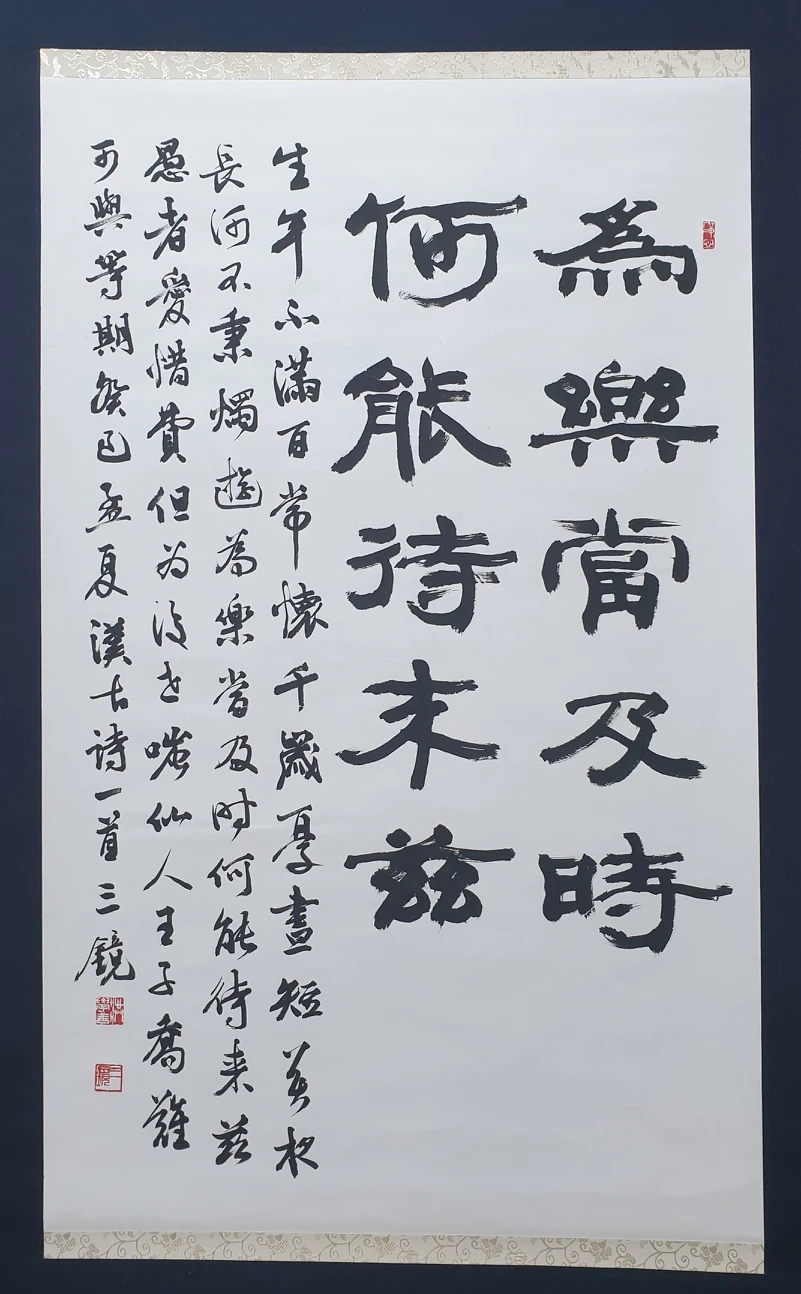 為樂當及時
何能待来茲
生年不滿百常懷千歲憂晝短苦夜
長何不秉燭遊為樂當及时何能待来茲
愚者愛惜費但为後世嗤仙人王子喬難
可與等期癸巳孟夏漢古詩一首三鏡